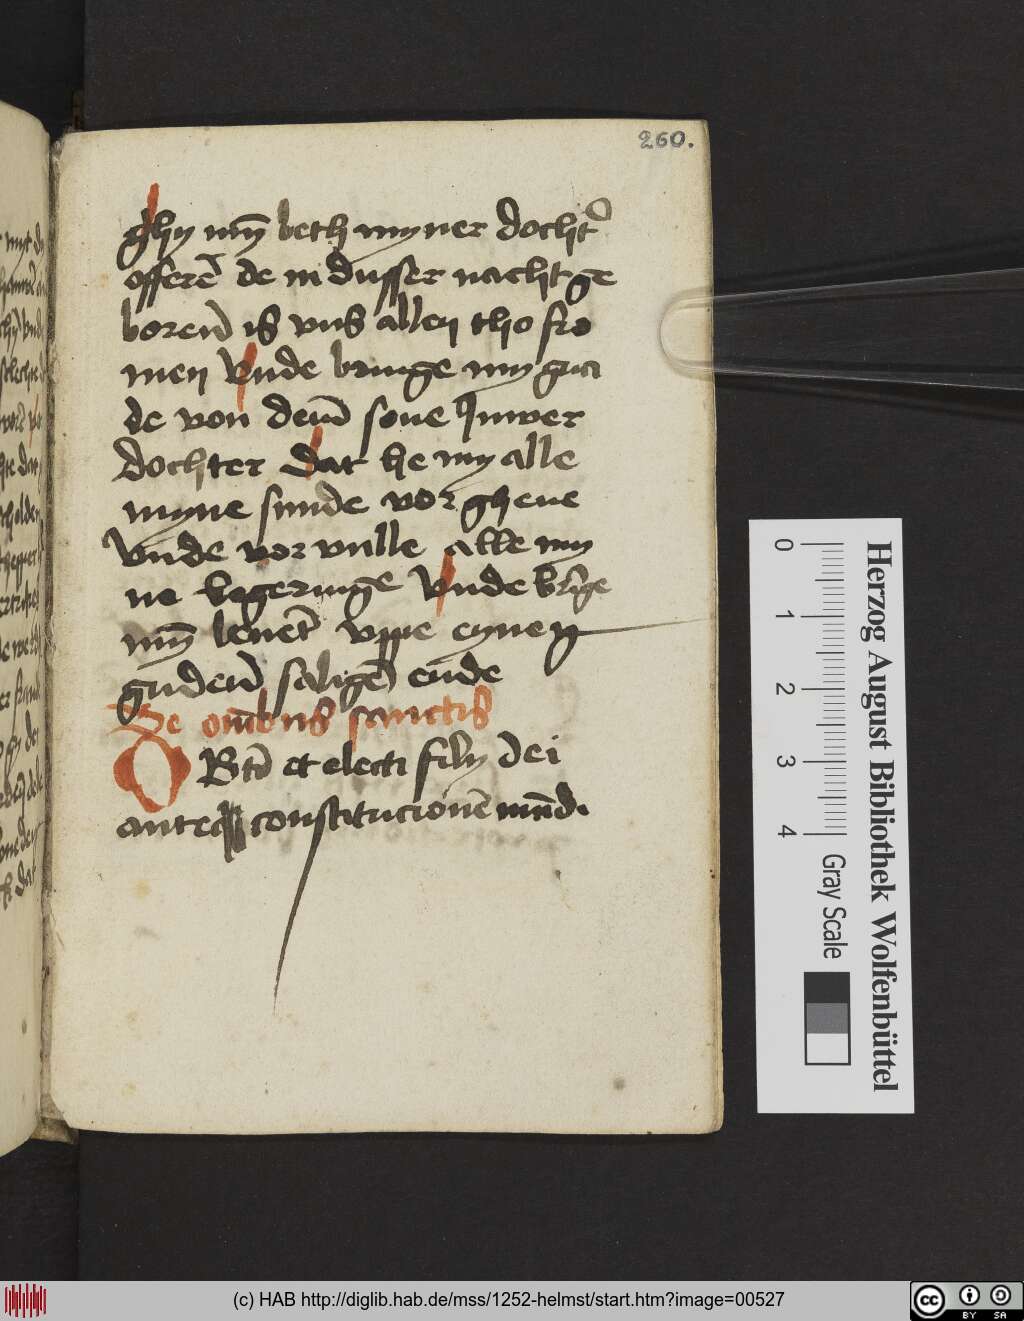 260.
ghy mȳ beth myner docht᷑
offerē de in dusser nacht ge
boren̄ is vns allen tho fro
men Vnde bringe my gna
de von dem̄ sone Juwer
dochter dat he my alle
myne sunde vor gheue
Vnde vor vulle alle my
ne begeringe Vnde br̄ge
mȳ leuet᷑ vppe eynen
gudem̄ saligē ende
De om̄ibus sanctis
O Btī et electi filij dei
ante constitucionē mūdi
0 1 2 3 4
Gray Scale
Herzog August Bibliothek Wolfenbüttel
(c) HAB http://diglib.hab.de/mss/1252-helmst/start.htm?image=00527
cc BY SA